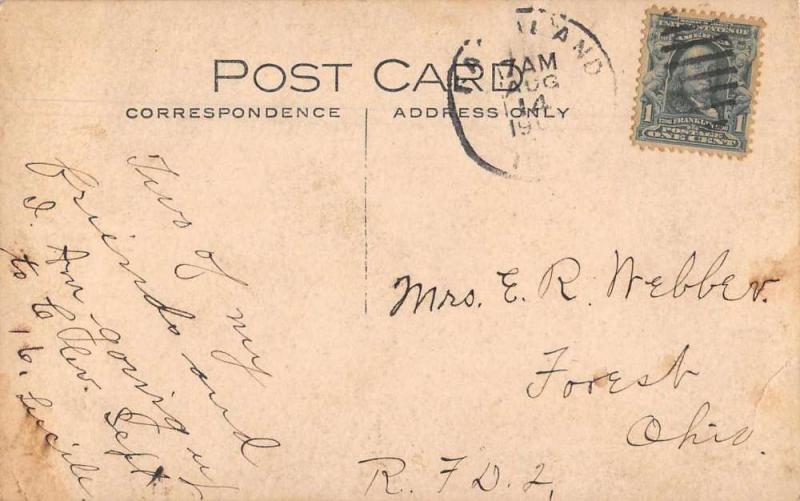 POST CARD
CORRESPONDENCE
ADDRESS ONLY
AND
7 AM
AUG
14
190
UNITED STATES OF
AMERICA
FRANKLIN
POSTAGE
1 ONE CENT 1
Two of my
friends and
I. Am going up
to Clev. Sept.
16. Lucile
Mrs. E. R. Webber.
Forest
Ohio.
R. F D. 2,